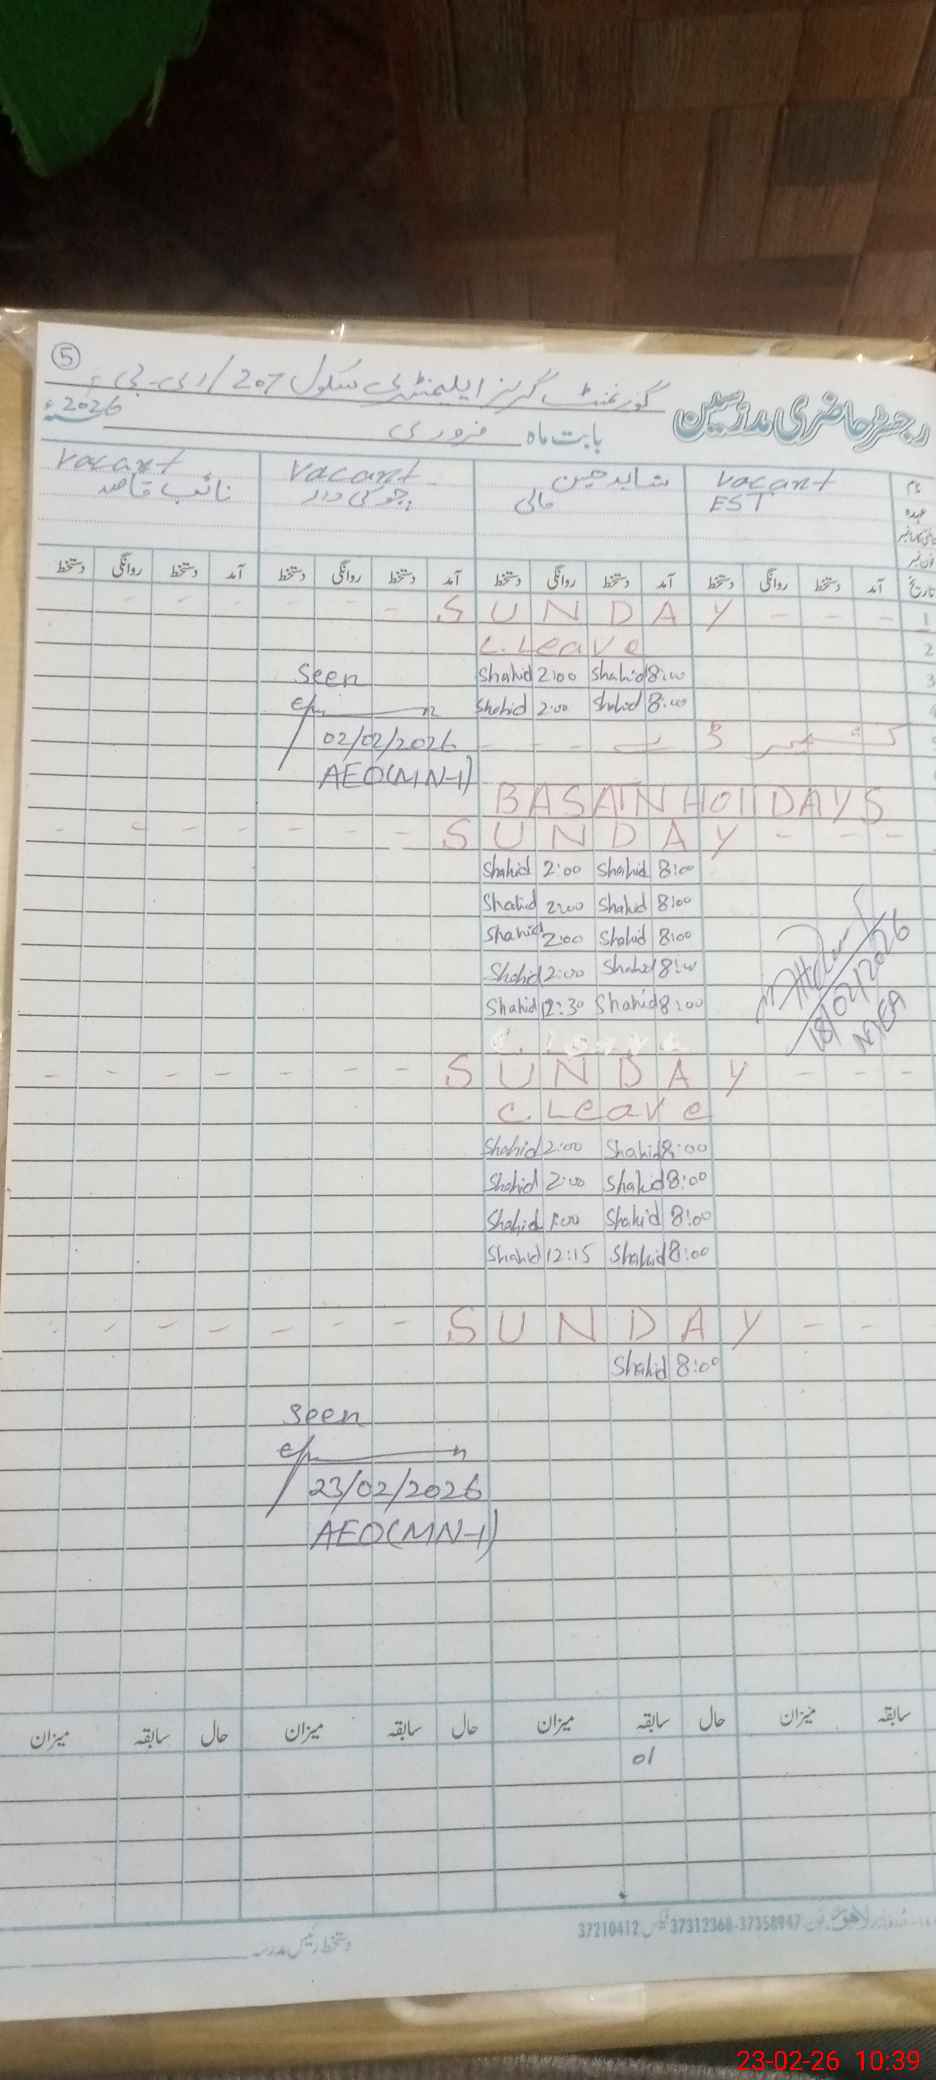 ⑤
گورنمنٹ گرلز ایلیمنٹری سکول 207/ ر-بی
رجسٹر حاضری مدرسین
بابت ماہ فروری 2026ء
نام Vacant شاہد حسین Vacant Vacant
عہدہ EST مالی چوکی دار نائب قاصد
تاریخ آمد دستخط روانگی دستخط آمد دستخط روانگی دستخط آمد دستخط روانگی دستخط آمد دستخط روانگی دستخط
1 SUNDAY
2 C. Leave
3 Shahid 2:00 Shahid 8:00 Seen
Shahid 2:00 Shahid 8:00
کشمیر ڈے
02/02/2026
AEO(MN-1)
BASANT HOLIDAYS
SUNDAY
Shahid 2:00 Shahid 8:00
Shahid 2:00 Shahid 8:00
Shahid 2:00 Shahid 8:00
Shahid 2:00 Shahid 8:00
Shahid 12:30 Shahid 8:00
18/02/2026
MEA
C. Leave
SUNDAY
C. Leave
Shahid 2:00 Shahid 8:00
Shahid 2:00 Shahid 8:00
Shahid 1:00 Shahid 8:00
Shahid 12:15 Shahid 8:00
SUNDAY
Shahid 8:00
Seen
23/02/2026
AEO(MN-1)
سابقہ میزان حال سابقہ میزان حال سابقہ میزان حال سابقہ میزان
01
لاہور فون 37312368-37358947 فیکس 37210412
دستخط رئیس مدرسہ
23-02-26 10:39